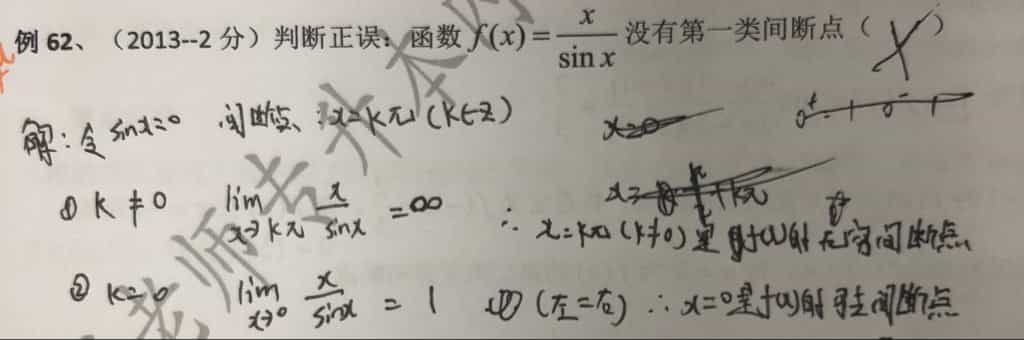 例 62、（2013--2 分）判断正误：函数 f(x)= x/sin x 没有第一类间断点（ ╳ ）
解：令 sinx=0 间断点：x=kπ (k∈Z)
① k≠0 lim x→kπ x/sinx =∞ ∴ x=kπ (k≠0) 是 f(x)的无穷间断点
② k=0 lim x→0 x/sinx = 1 (左=右) ∴ x=0是f(x)的可去间断点
老师专升本